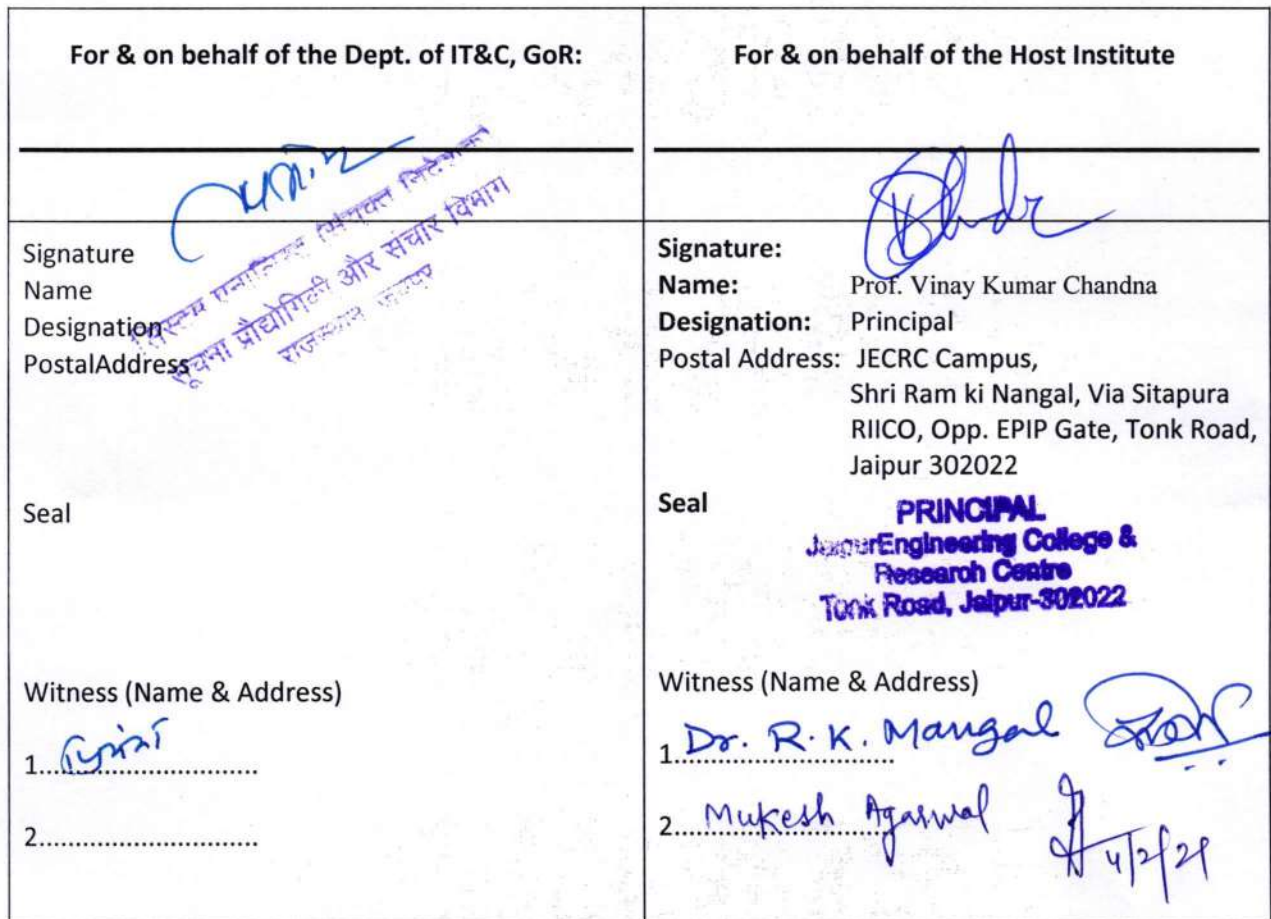 For & on behalf of the Dept. of IT&C, GoR:
सूचना प्रौद्योगिकी और संचार विभाग
Signature
Name
Designation
PostalAddress
Seal
Witness (Name & Address)
1..............................
2..............................
For & on behalf of the Host Institute
Signature:
Name: Prof. Vinay Kumar Chandna
Designation: Principal
Postal Address: JECRC Campus,
Shri Ram ki Nangal, Via Sitapura
RIICO, Opp. EPIP Gate, Tonk Road,
Jaipur 302022
Seal
PRINCIPAL
JaipurEngineering College &
Research Centre
Tonk Road, Jaipur-302022
Witness (Name & Address)
1. Dr. R. K. Mangal
2. Mukesh Agarwal
4/2/21